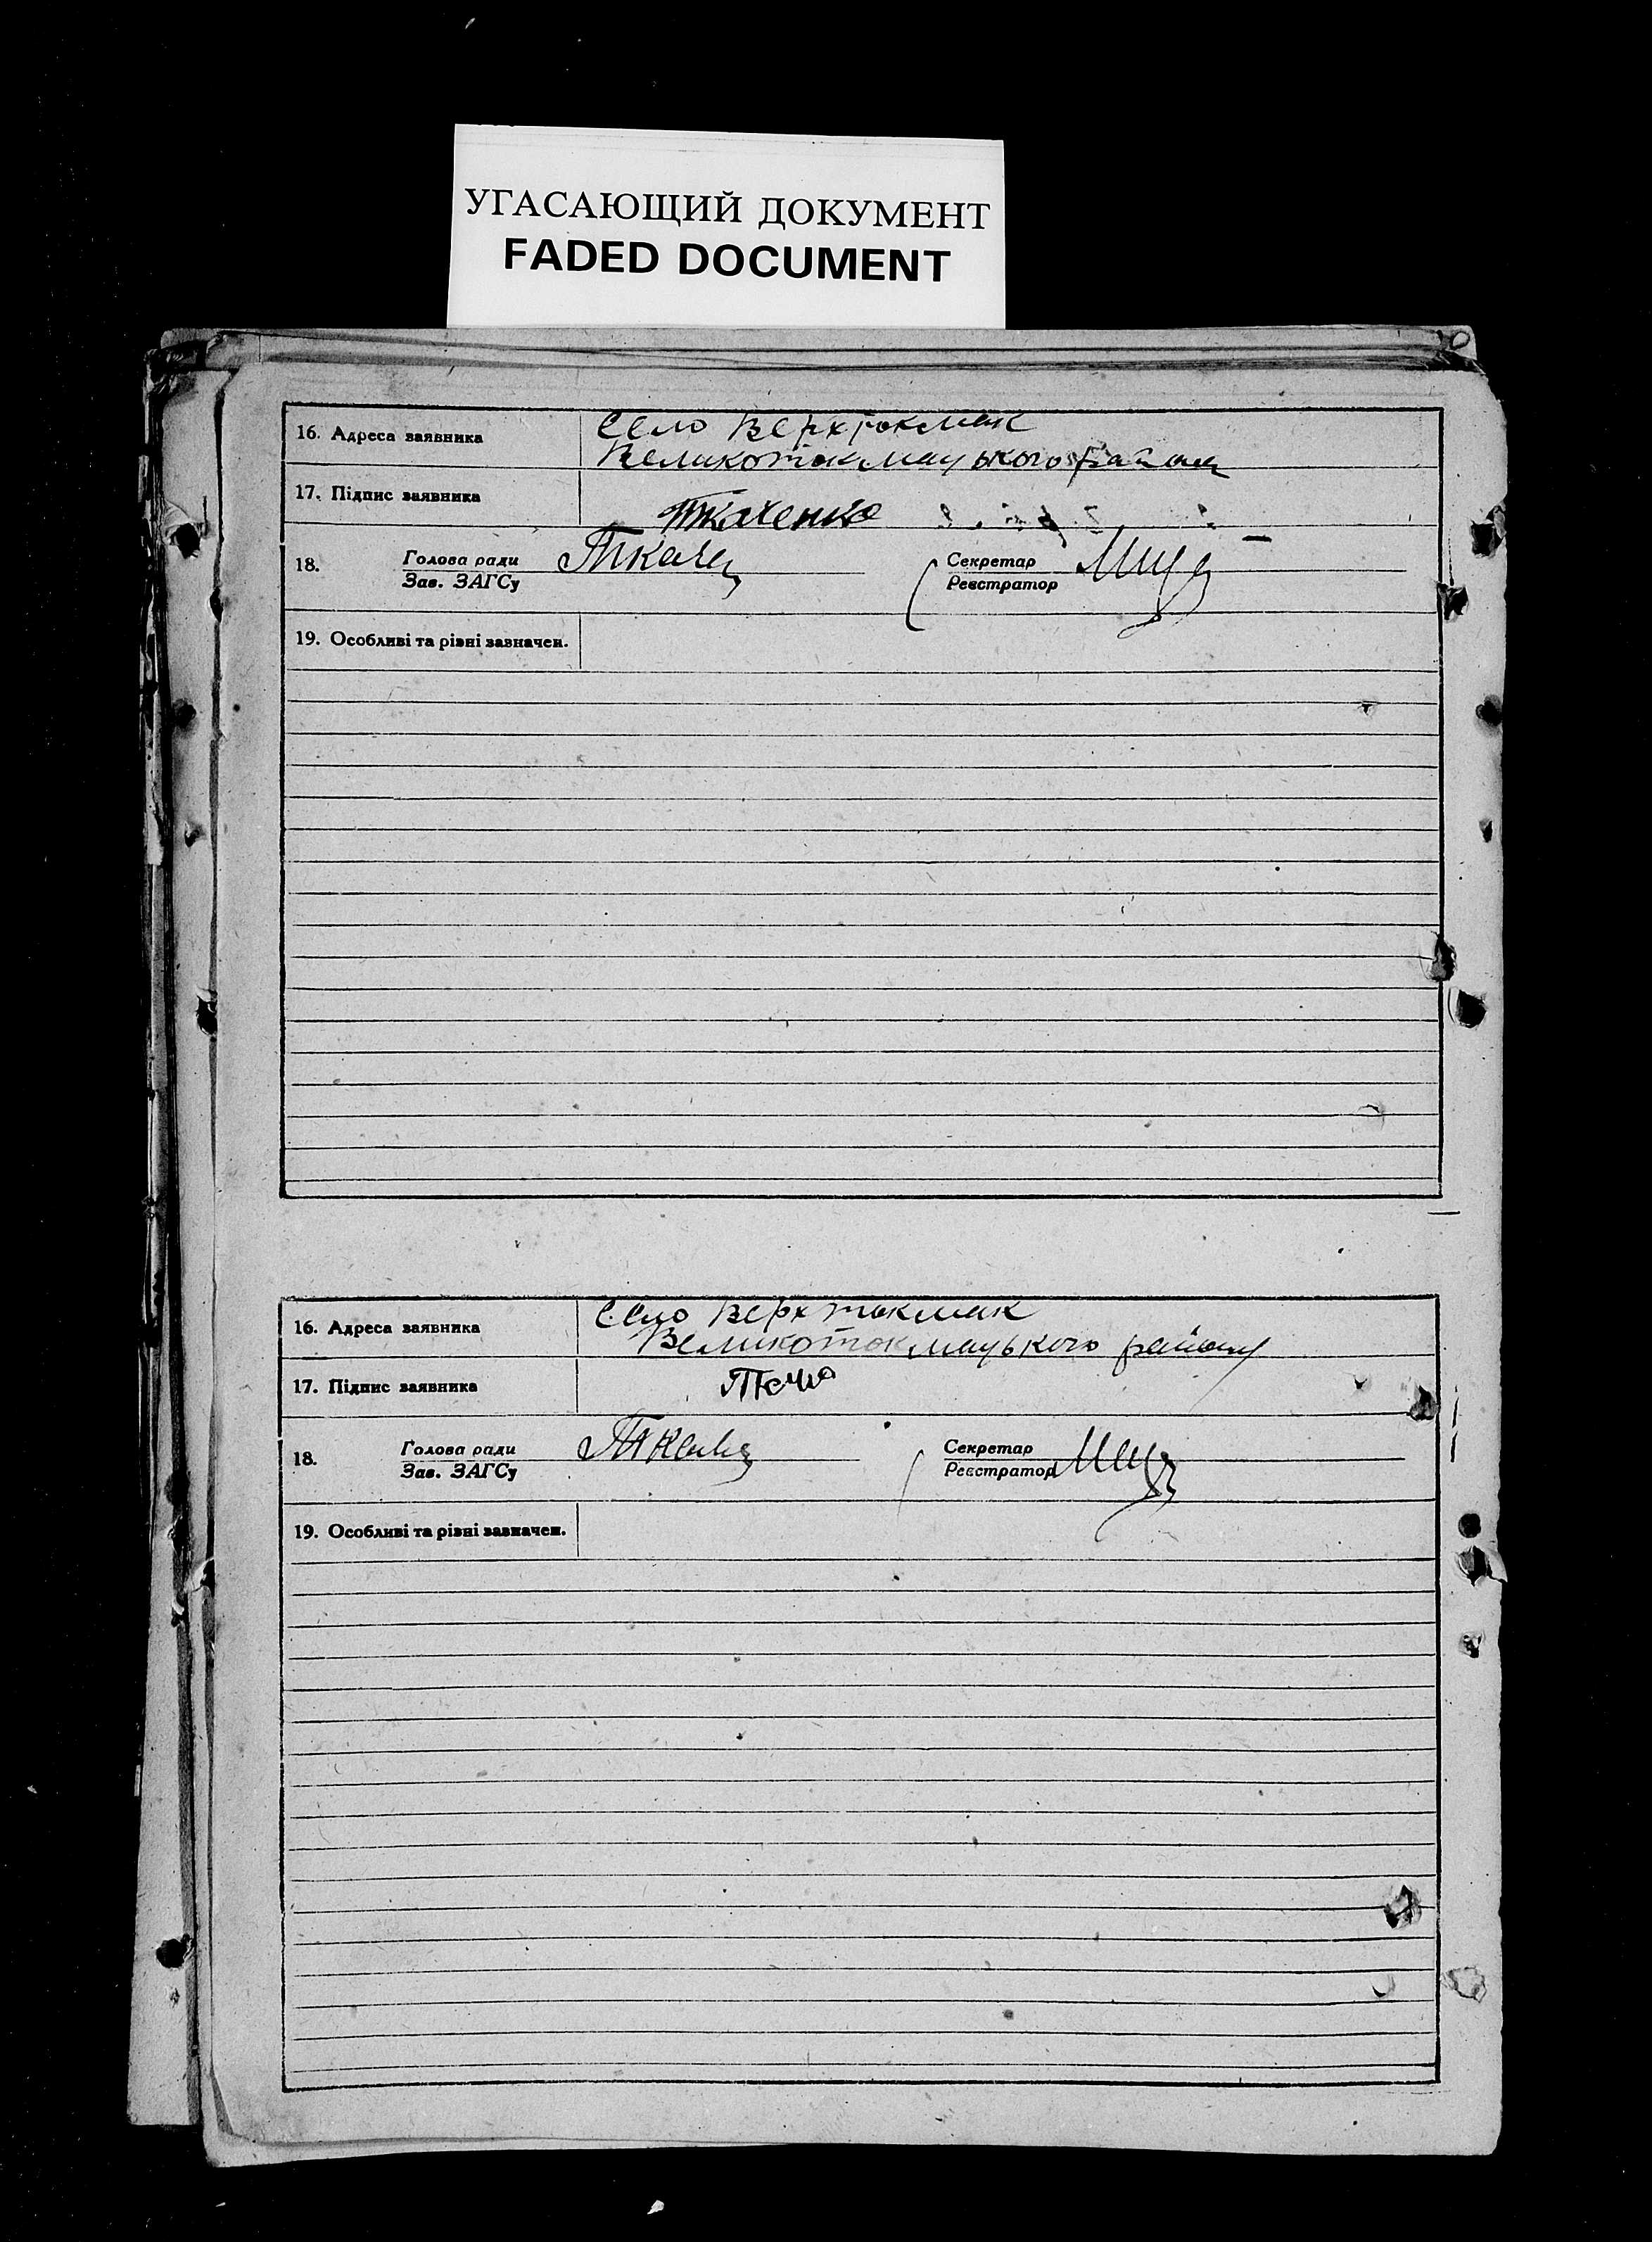 УГАСАЮЩИЙ ДОКУМЕНТ
FADED DOCUMENT
16. Адреса заявника
село Верхтокмак
Великотокмацького району
17. Підпис заявника
Ткаченко
18.
Голова ради
Зав. ЗАГСу
Секретар
Реєстратор
19. Особливі та різні зазначен.
16. Адреса заявника
село Верхтокмак
Великотокмацького району
17. Підпис заявника
18.
Голова ради
Зав. ЗАГСу
Секретар
Реєстратор
19. Особливі та різні зазначен.